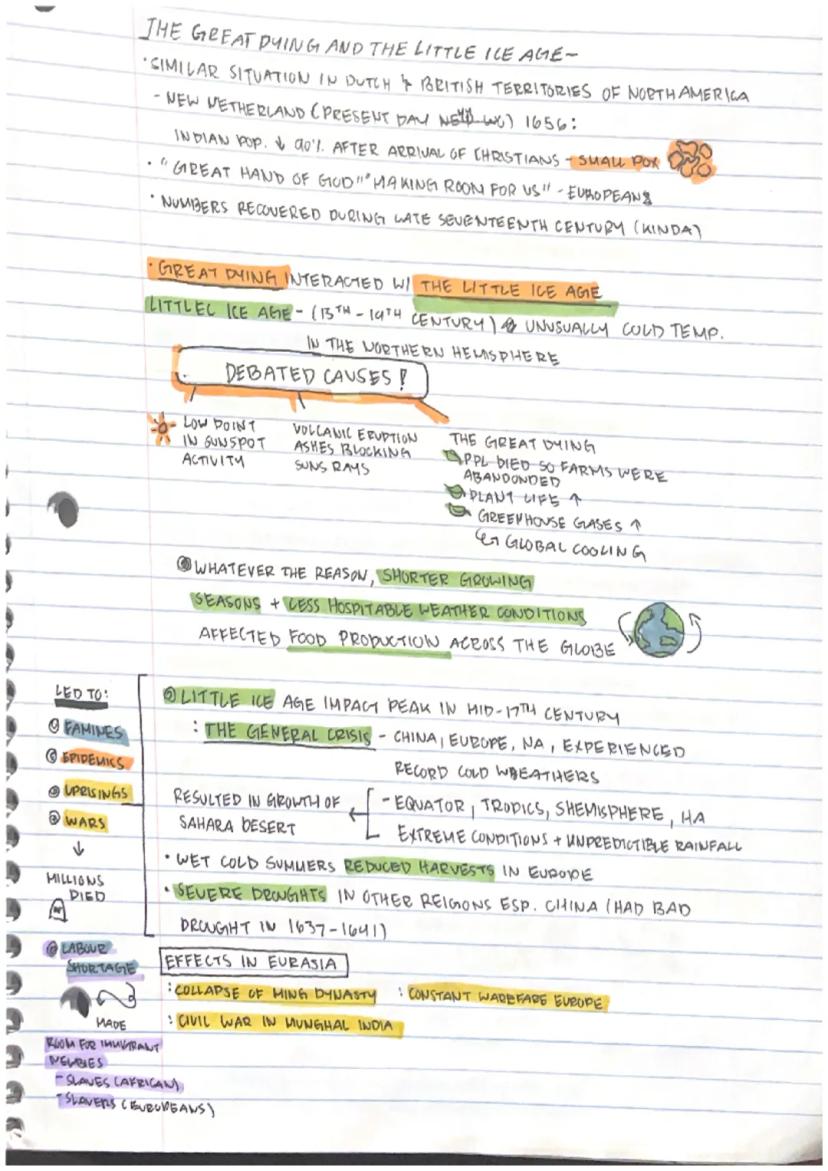 THE GREAT DYING AND THE LITTLE ICE AGE~
• SIMILAR SITUATION IN DUTCH & BRITISH TERRITORIES OF NORTH AMERICA
- NEW NETHERLAND (PRESENT DAY 1656:
INDIAN POP. ↓ 90% AFTER ARRIVAL OF CHRISTIANS - SMALL POX
• "GREAT HAND OF GOD" "MAKING ROOM FOR US" - EUROPEANS
• NUMBERS RECOVERED DURING LATE SEVENTEENTH CENTURY (KINDA)
• GREAT DYING INTERACTED W/ THE LITTLE ICE AGE
LITTLEC ICE AGE - (13TH - 19TH CENTURY) UNUSUALLY COLD TEMP.
IN THE NORTHERN HEMISPHERE
DEBATED CAUSES!
LOW POINT
IN SUNSPOT
ACTIVITY
VOLCANIC ERUPTION
ASHES BLOCKING
SUNS RAYS
THE GREAT DYING
PPL DIED SO FARMS WERE
ABANDONDED
PLANT LIFE ↑
GREENHOUSE GASES ↑
↳ GLOBAL COOLING
WHATEVER THE REASON, SHORTER GROWING
SEASONS + LESS HOSPITABLE WEATHER CONDITIONS
AFFECTED FOOD PRODUCTION ACROSS THE GLOBE
LED TO:
FAMINES
EPIDEMICS
UPRISINGS
WARS
↓
MILLIONS
DIED
LITTLE ICE AGE IMPACT PEAK IN MID-17TH CENTURY
: THE GENERAL CRISIS - CHINA, EUROPE, NA, EXPERIENCED
RECORD COLD WEATHERS
RESULTED IN GROWTH OF
SAHARA DESERT
← - EQUATOR, TROPICS, SHEMISPHERE, HA
EXTREME CONDITIONS + UNPREDICTIBLE RAINFALL
• WET COLD SUMMERS REDUCED HARVESTS IN EUROPE
• SEVERE DROUGHTS IN OTHER REIGONS ESP. CHINA (HAD BAD
DROUGHT IN 1637-1641)
LABOUR
SHORTAGE
MADE
ROOM FOR IMMIGRANT
NEWBIES
- SLAVES (AFRICAN)
- SLAVERS (EUROPEANS)
EFFECTS IN EURASIA
: COLLAPSE OF MING DYNASTY : CONSTANT WAREFARE EUROPE
: CIVIL WAR IN MUNGHAL INDIA